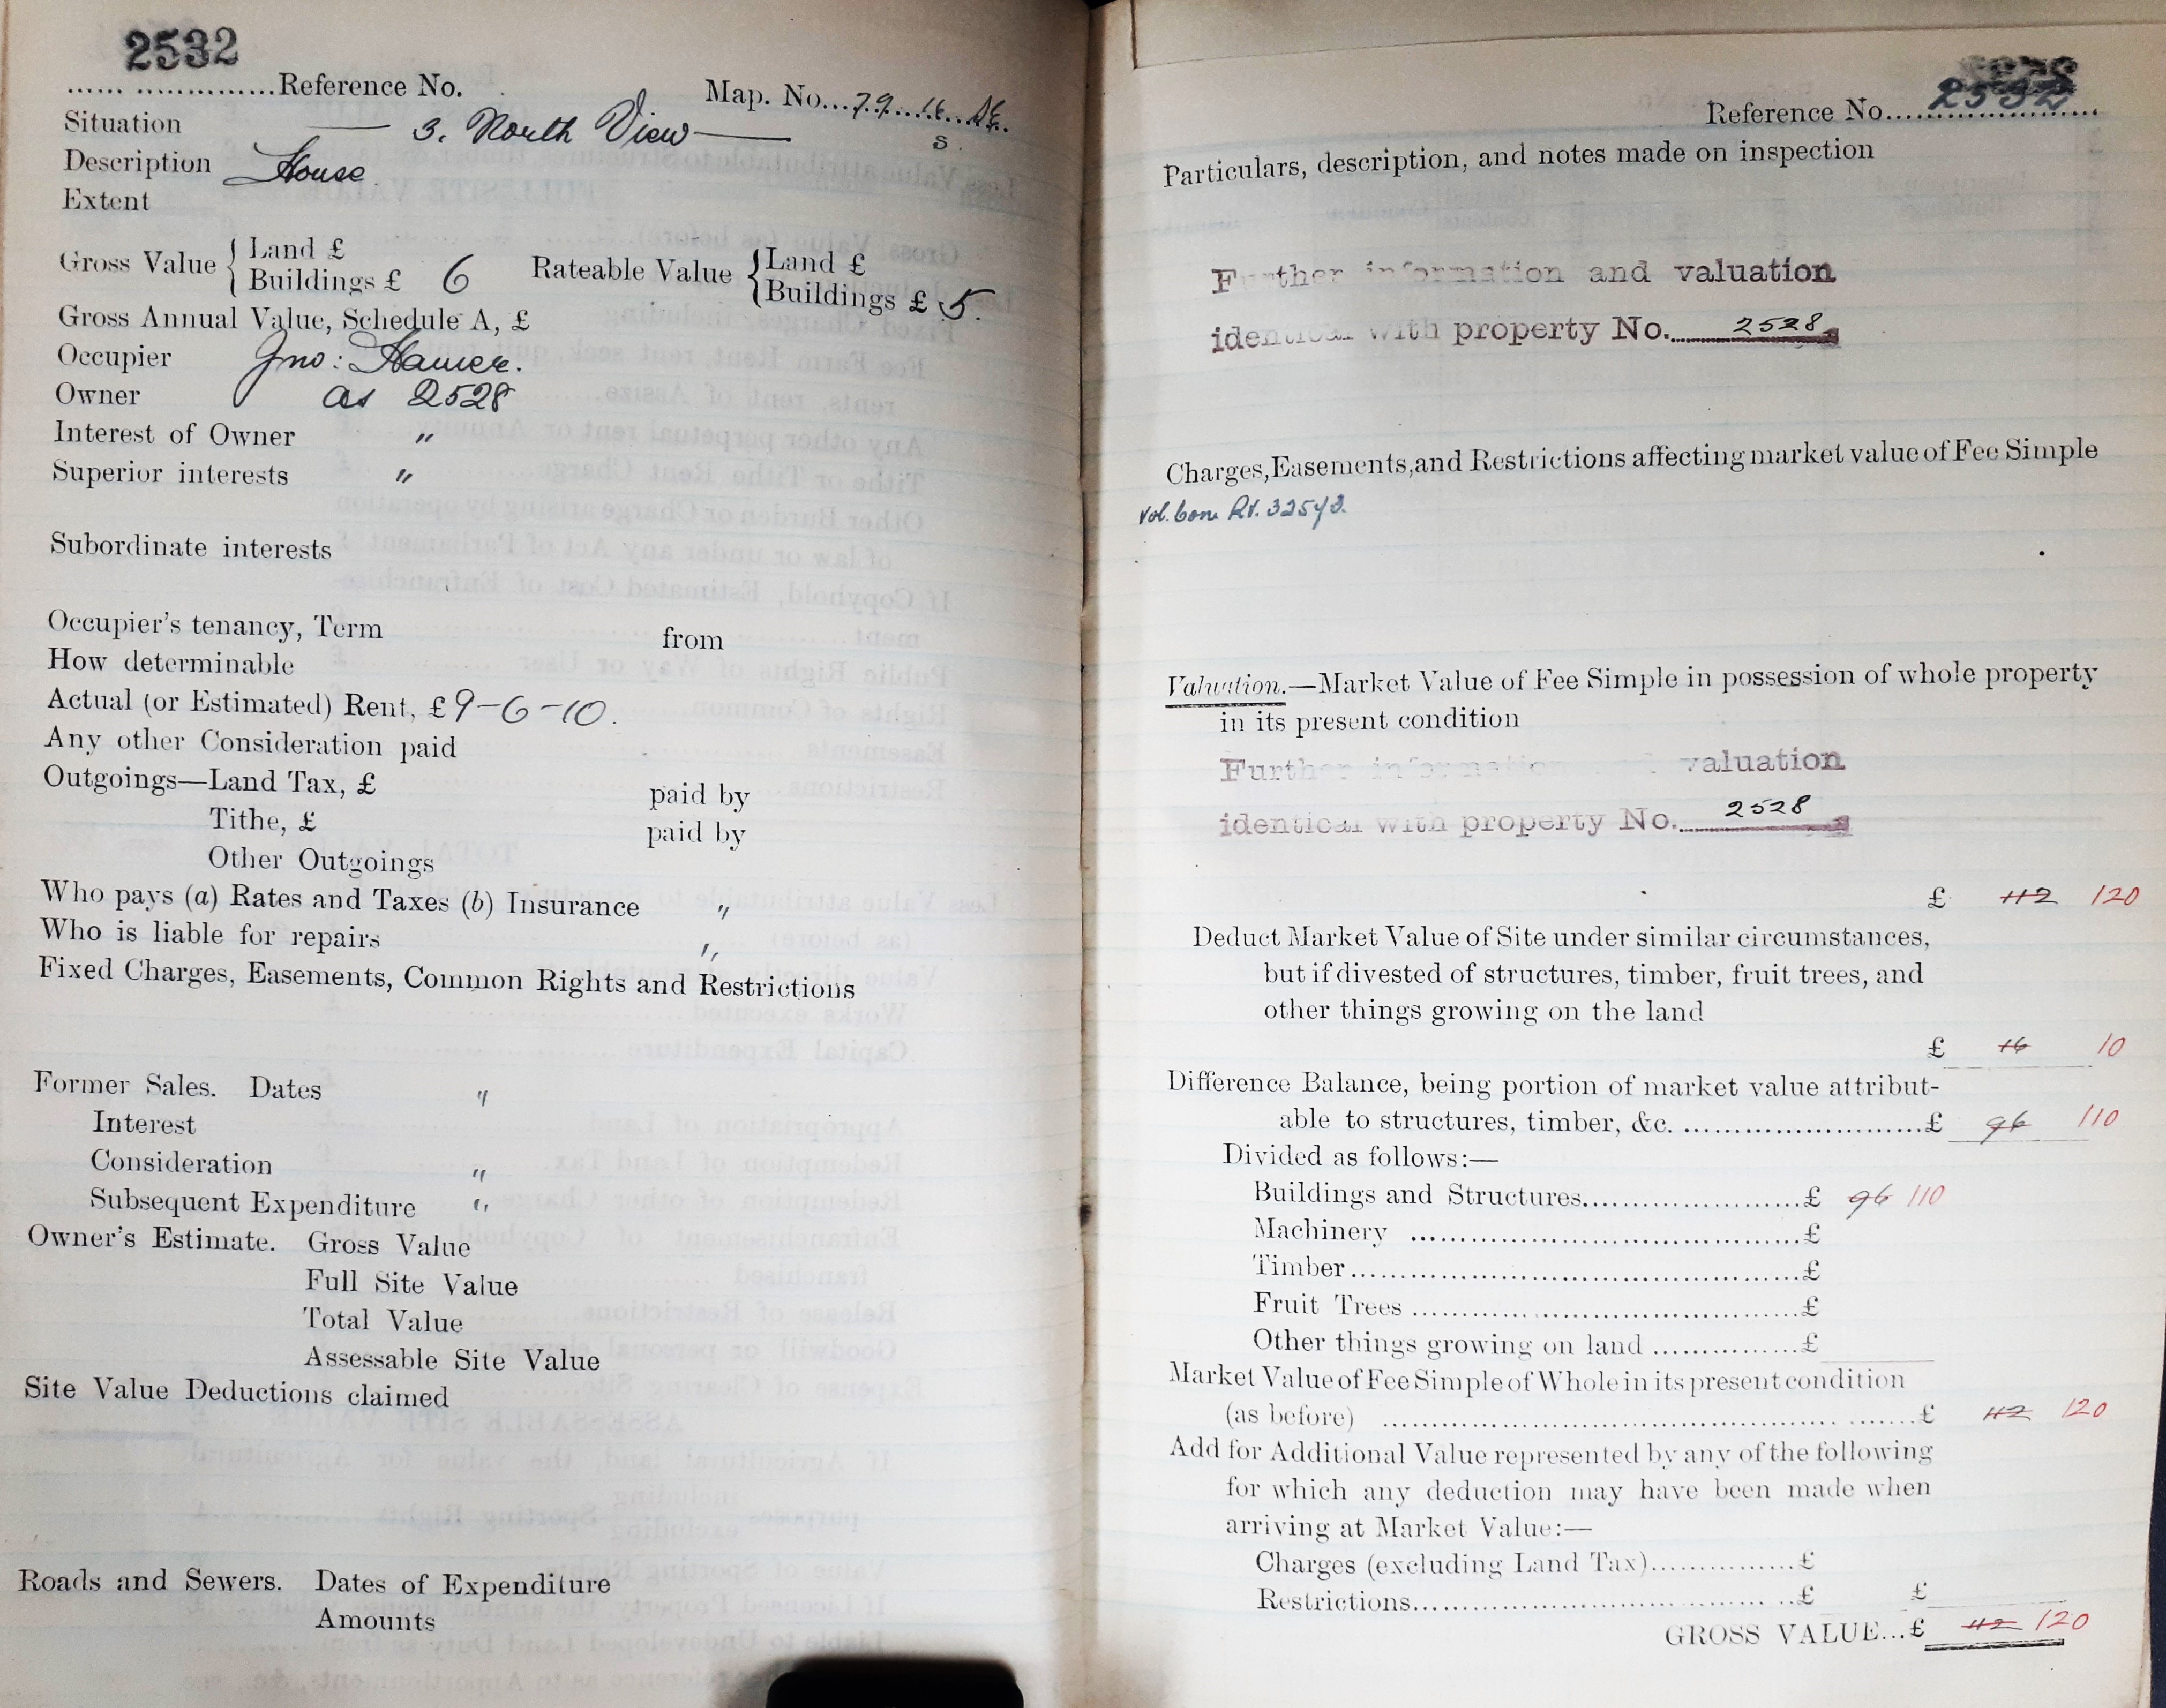 2532
...... ..............Reference No.
Map. No...79...16...
S.
Situation 3. North View
Description House
Extent
Gross Value { Land £
Buildings £ 6
Rateable Value { Land £
Buildings £ 5.
Gross Annual Value, Schedule A, £
Occupier Jno: Hamer.
Owner as 2528
Interest of Owner "
Superior interests "
Subordinate interests
Occupier's tenancy, Term from
How determinable
Actual (or Estimated) Rent, £ 9-6-10.
Any other Consideration paid
Outgoings—Land Tax, £ paid by
Tithe, £ paid by
Other Outgoings
Who pays (a) Rates and Taxes (b) Insurance "
Who is liable for repairs "
Fixed Charges, Easements, Common Rights and Restrictions
Former Sales. Dates "
Interest
Consideration "
Subsequent Expenditure "
Owner's Estimate. Gross Value
Full Site Value
Total Value
Assessable Site Value
Site Value Deductions claimed
Roads and Sewers. Dates of Expenditure
Amounts
Reference No. 2532
Particulars, description, and notes made on inspection
Further information and valuation
identical with property No. 2528
Charges, Easements, and Restrictions affecting market value of Fee Simple
Vol. 32543.
Valuation.—Market Value of Fee Simple in possession of whole property
in its present condition
Further information and valuation
identical with property No. 2528
£ 112 120
Deduct Market Value of Site under similar circumstances,
but if divested of structures, timber, fruit trees, and
other things growing on the land
£ 16 10
Difference Balance, being portion of market value attribut-
able to structures, timber, &c. ........................£ 96 110
Divided as follows:—
Buildings and Structures........................£ 96 110
Machinery ........................£
Timber........................£
Fruit Trees ........................£
Other things growing on land ...............£
Market Value of Fee Simple of Whole in its present condition
(as before) ........................£ 112 120
Add for Additional Value represented by any of the following
for which any deduction may have been made when
arriving at Market Value:—
Charges (excluding Land Tax)...............£
Restrictions........................£ £
GROSS VALUE...£ 112 120